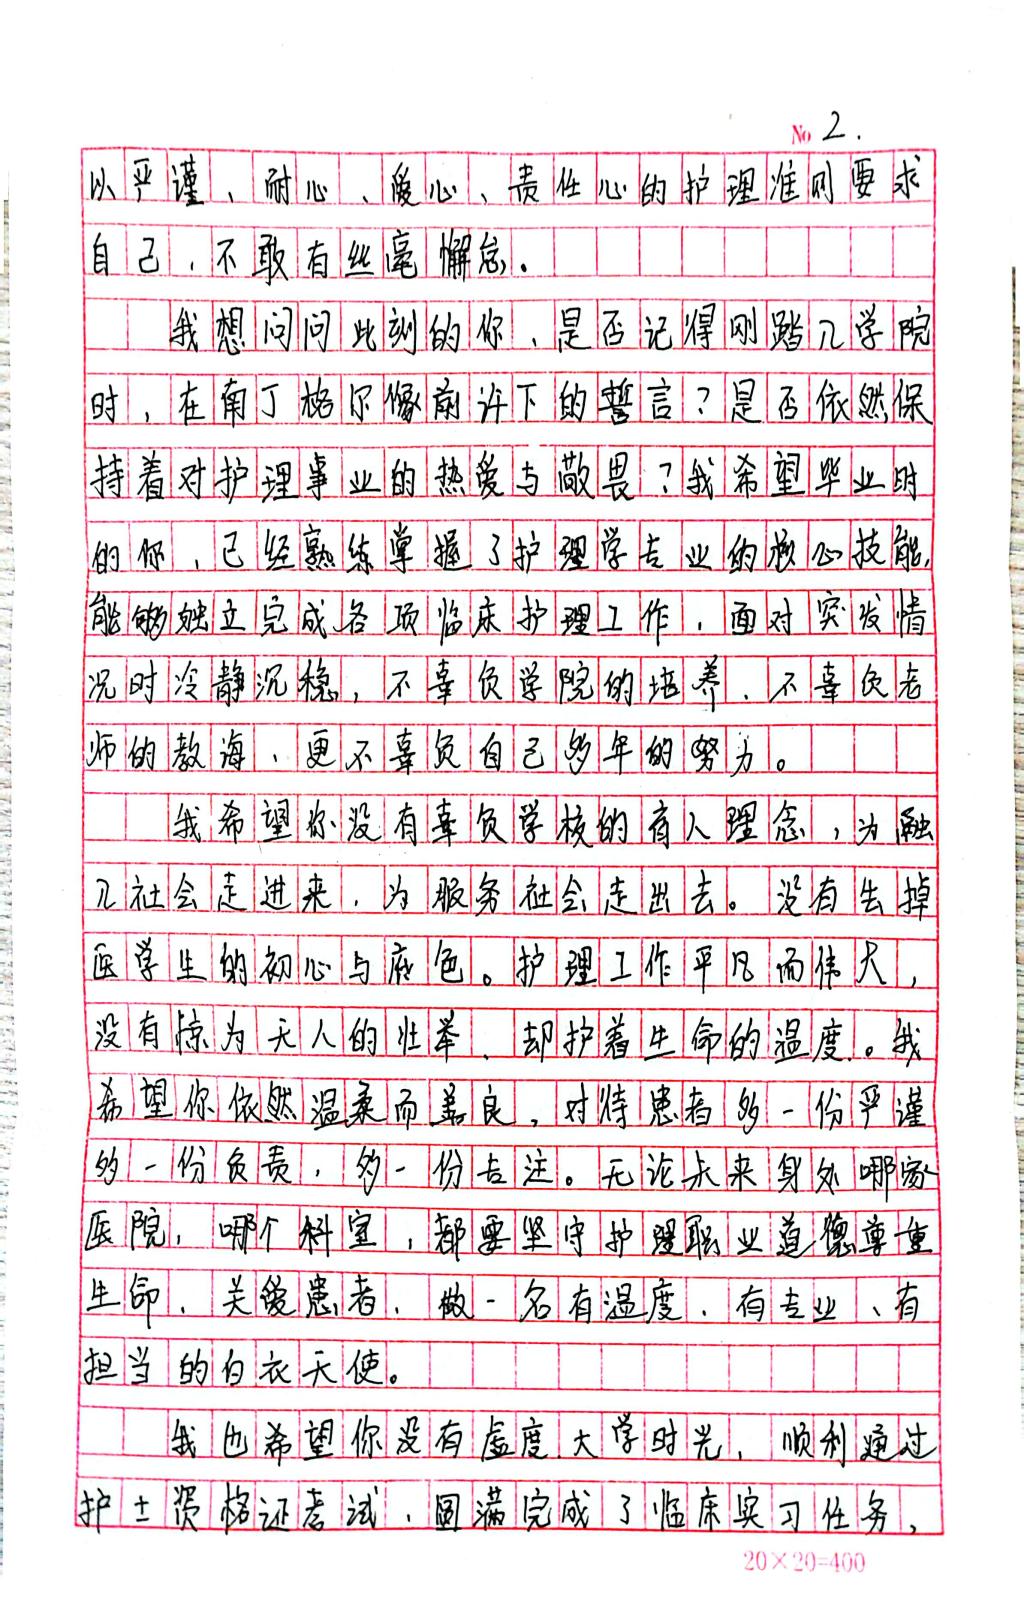 No 2.
以严谨、耐心、爱心、责任心的护理准则要求
自己，不敢有丝毫懈怠。
我想问问此刻的你，是否记得刚踏入学院
时，在南丁格尔像前许下的誓言？是否依然保
持着对护理事业的热爱与敬畏？我希望毕业时
的你，已经熟练掌握了护理学专业的核心技能，
能够独立完成各项临床护理工作，面对突发情
况时冷静沉稳，不辜负学院的培养、不辜负老
师的教海，更不辜负自己多年的努力。
我希望你没有辜负学校的育人理念，为融
入社会走进来，为服务社会走出去。没有去掉
医学生的初心与底色。护理工作平凡而伟大，
没有惊为天人的壮举，却护着生命的温度。我
希望你依然温柔而善良，对待患者多一份严谨
多一份负责，多一份专注。无论未来身处哪家
医院，哪个科室，都要坚守护理职业道德尊重
生命、关爱患者，做一名有温度、有专业、有
担当的白衣天使。
我也希望你没有虚度大学时光，顺利通过
护士资格证考试，圆满完成了临床实习任务，
20×20=400